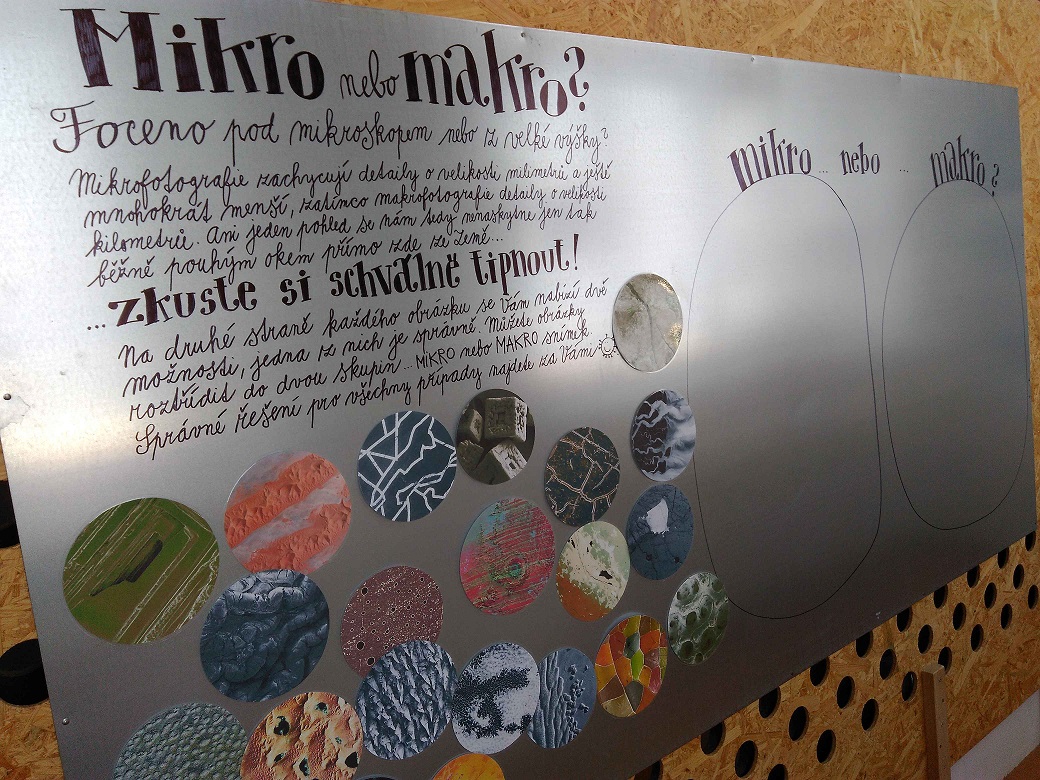 Mikro nebo makro?
Foceno pod mikroskopem nebo z velké výšky?
Mikrofotografie zachycují detaily o velikosti milimetrů a ještě
mnohokrát menší, zatímco makrofotografie detaily o velikosti
kilometrů. Ani jeden pohled se nám tedy nenaskytne jen tak
běžně pouhým okem přímo zde ze Země...
...zkuste si schválně tipnout!
Na druhé straně každého obrázku se Vám nabízí dvě
možnosti, jedna z nich je správně. Můžete obrázky
roztřídit do dvou skupin... MIKRO nebo MAKRO snímek.
Správné řešení pro všechny případy najdete za Vámi
mikro ... nebo ... makro?